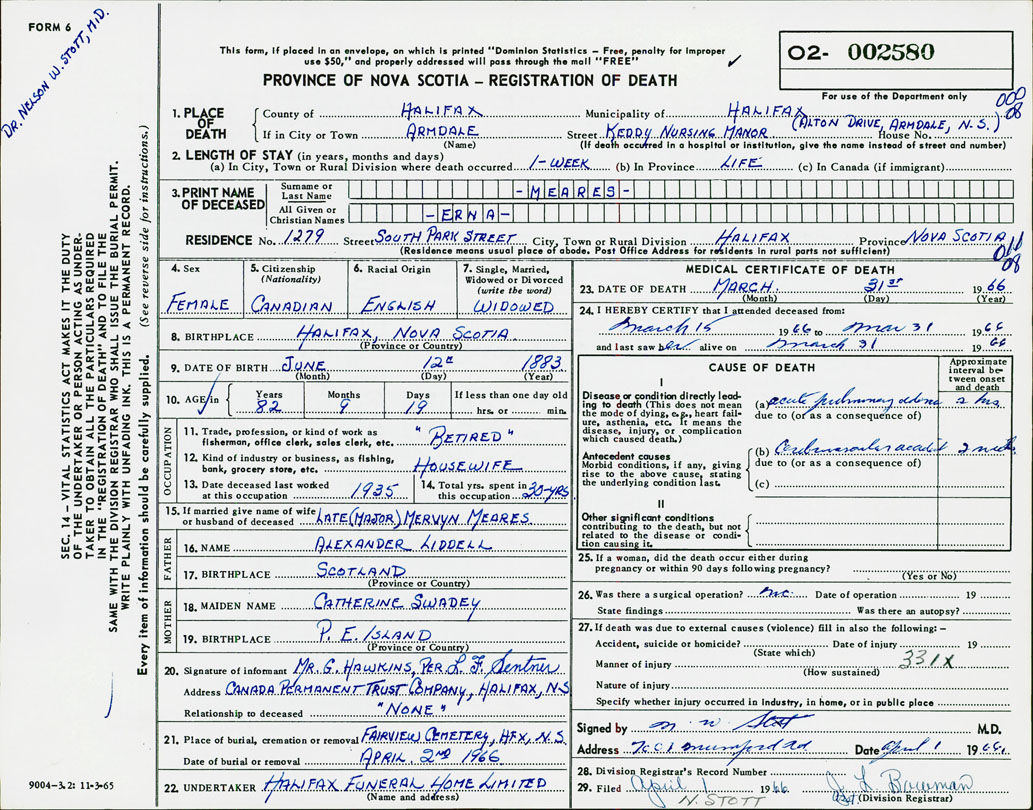 FORM 6
DR. NELSON W. STOTT, M.D.
This form, if placed in an envelope, on which is printed "Dominion Statistics – Free, penalty for improper
use $50," and properly addressed will pass through the mail "FREE"
PROVINCE OF NOVA SCOTIA – REGISTRATION OF DEATH
02- 002580
For use of the Department only
000
08
1. PLACE OF DEATH County of HALIFAX Municipality of HALIFAX
(ALTON DRIVE, ARMDALE, N.S.)
If in City or Town ARMDALE Street KEDDY NURSING MANOR House No.
(Name) (If death occurred in a hospital or institution, give the name instead of street and number)
2. LENGTH OF STAY (in years, months and days)
(a) In City, Town or Rural Division where death occurred 1-WEEK (b) In Province LIFE (c) In Canada (if immigrant)
3. PRINT NAME OF DECEASED Surname or Last Name -MEARES-
All Given or Christian Names -ERNA-
RESIDENCE No. 1279 Street SOUTH PARK STREET City, Town or Rural Division HALIFAX Province NOVA SCOTIA
(Residence means usual place of abode. Post Office Address for residents in rural parts not sufficient)
011
08
4. Sex FEMALE
5. Citizenship (Nationality) CANADIAN
6. Racial Origin ENGLISH
7. Single, Married, Widowed or Divorced (write the word) WIDOWED
8. BIRTHPLACE HALIFAX, NOVA SCOTIA
(Province or Country)
9. DATE OF BIRTH JUNE 12th 1883
(Month) (Day) (Year)
10. AGE in Years 82 Months 9 Days 19 If less than one day old hrs. or min.
OCCUPATION
11. Trade, profession, or kind of work as
fisherman, office clerk, sales clerk, etc. "RETIRED"
12. Kind of industry or business, as fishing,
bank, grocery store, etc. HOUSEWIFE
13. Date deceased last worked at this occupation 1935
14. Total yrs. spent in this occupation 30-YRS
15. If married give name of wife
or husband of deceased LATE (MAJOR) MERVYN MEARES
FATHER
16. NAME ALEXANDER LIDDELL
17. BIRTHPLACE SCOTLAND
(Province or Country)
MOTHER
18. MAIDEN NAME CATHERINE SWADEY
19. BIRTHPLACE P. E. ISLAND
(Province or Country)
20. Signature of informant MR. G. HAWKINS, PER. L. F. Sentner
Address CANADA PERMANENT TRUST COMPANY, HALIFAX, N.S
Relationship to deceased "NONE"
21. Place of burial, cremation or removal FAIRVIEW CEMETERY, HFX, N.S.
Date of burial or removal APRIL 2ND 1966
22. UNDERTAKER HALIFAX FUNERAL HOME LIMITED
(Name and address)
MEDICAL CERTIFICATE OF DEATH
23. DATE OF DEATH MARCH 31ST 1966
(Month) (Day) (Year)
24. I HEREBY CERTIFY that I attended deceased from:
March 15 1966 to Mar 31 1966
and last saw her alive on March 31 1966
CAUSE OF DEATH
Approximate interval between onset and death
I
Disease or condition directly leading to death (This does not mean the mode of dying, e.g., heart failure, asthenia, etc. It means the disease, injury, or complication which caused death.)
(a) acute pulmonary edema 2 hrs
due to (or as a consequence of)
Antecedent causes
Morbid conditions, if any, giving rise to the above cause, stating the underlying condition last.
(b) Cerebrovascular accident 2 weeks
due to (or as a consequence of)
(c)
II
Other significant conditions
contributing to the death, but not related to the disease or condition causing it.
25. If a woman, did the death occur either during
pregnancy or within 90 days following pregnancy?
(Yes or No)
26. Was there a surgical operation? no. Date of operation 19
State findings Was there an autopsy?
27. If death was due to external causes (violence) fill in also the following: –
Accident, suicide or homicide? Date of injury 19
(State which)
Manner of injury 331X
(How sustained)
Nature of injury
Specify whether injury occurred in industry, in home, or in public place
Signed by N. W. Stott M.D.
Address Mumford Rd Date April 1 1966.
28. Division Registrar's Record Number
29. Filed April 1 1966 J. L. Bowman
N. STOTT (Division Registrar)
SEC. 14 – VITAL STATISTICS ACT MAKES IT THE DUTY
OF THE UNDERTAKER OR PERSON ACTING AS UNDER-
TAKER TO OBTAIN ALL THE PARTICULARS REQUIRED
IN THE "REGISTRATION OF DEATH" AND TO FILE THE
SAME WITH THE DIVISION REGISTRAR WHO SHALL ISSUE THE BURIAL PERMIT.
WRITE PLAINLY WITH UNFADING INK. THIS IS A PERMANENT RECORD.
Every item of information should be carefully supplied. (See reverse side for instructions.)
9004-3.2: 11-3-65